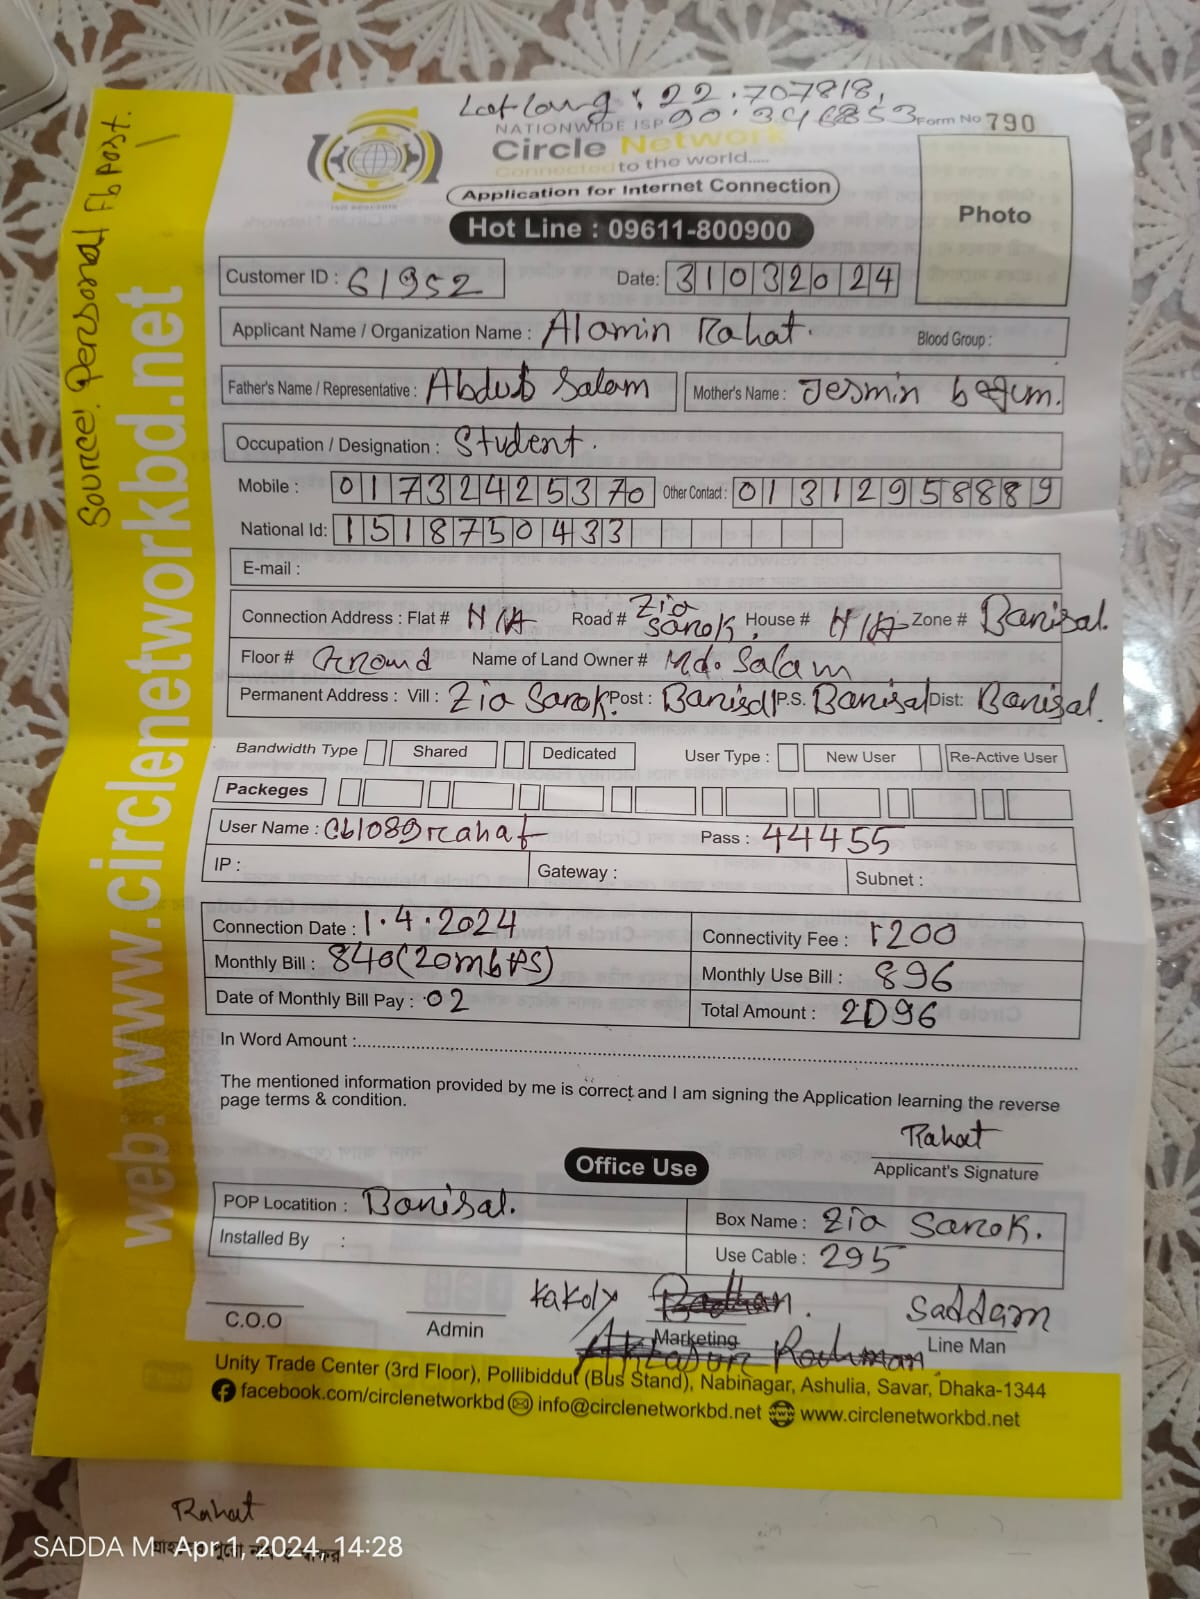 Lat Long : 22.707818,
90.346853
NATIONWIDE ISP
Form No 790
Circle Network
Connected to the world.....
Application for Internet Connection
Hot Line : 09611-800900
Photo
Source: Personal Fb Post.
web: www.circlenetworkbd.net
Customer ID : 61952
Date: 31032024
Applicant Name / Organization Name : Alamin Rahat. Blood Group :
Father's Name / Representative : Abdus Salam Mother's Name : Jesmin begum.
Occupation / Designation : Student.
Mobile : 01732425370 Other Contact : 01312958889
National Id: 1518750433
E-mail :
Connection Address : Flat # N/A Road # Zia Sarok, House # N/A Zone # Barisal.
Floor # Ground Name of Land Owner # Md. Salam
Permanent Address : Vill : Zia Sarok, Post : Barisal P.S. Barisal Dist: Barisal.
Bandwidth Type Shared Dedicated User Type : New User Re-Active User
Packeges
User Name : cb1089rahat Pass : 44455
IP : Gateway : Subnet :
Connection Date : 1.4.2024 Connectivity Fee : 1200
Monthly Bill : 840(20mbps) Monthly Use Bill : 896
Date of Monthly Bill Pay : 02 Total Amount : 2096
In Word Amount :
The mentioned information provided by me is correct and I am signing the Application learning the reverse
page terms & condition.
Rahat
Applicant's Signature
Office Use
POP Locatition : Barisal. Box Name : Zia Sarok.
Installed By : Use Cable : 295
Kakoly Saddam
C.O.O Admin Marketing Line Man
Rahman
Unity Trade Center (3rd Floor), Pollibiddut (Bus Stand), Nabinagar, Ashulia, Savar, Dhaka-1344
facebook.com/circlenetworkbd info@circlenetworkbd.net www.circlenetworkbd.net
Rahat
SADDA M Apr 1, 2024, 14:28